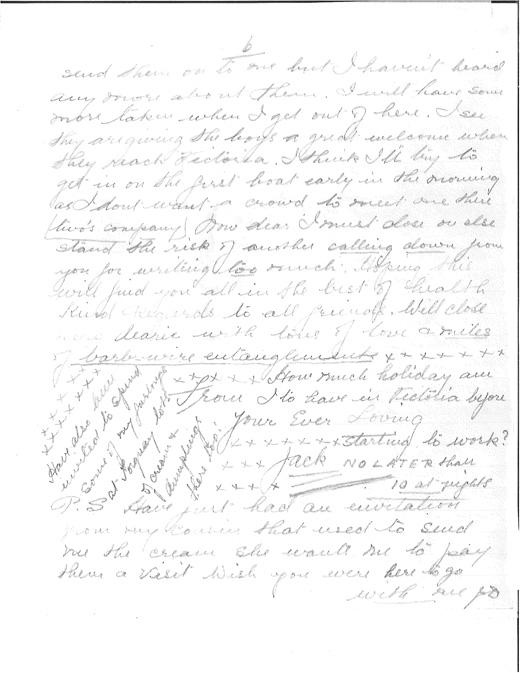 6
send them on to me but I haven't heard
any more about them. I will have some
more taken when I get out of here. I see
they are giving the boys a great welcome when
they reach Victoria. I think I'll try to
get in on the first boat early in the morning
as I dont want a crowd to meet me there
(two's company) Now dear I must close or else
stand the risk of another calling down from
you for writing too much. Hoping this
will find you all in the best of health
Kind regards to all friends. Will close
now dearie with tons of love & miles
of barb-wire entanglements x x x x x x x
x x x x x x How much holiday am
From I to have in Victoria before
Your Ever Loving
x x x x x x x starting to work?
x x x Jack NO LATER than
x x x x 10 at nights
Have also been
invited to spend
some of my furlough
at Torquay lots
of cream &
dumplings
there too!
P.S. Have just had an invitation
from my cousin that used to send
me the cream she wants me to pay
them a visit Wish you were here to go
with me